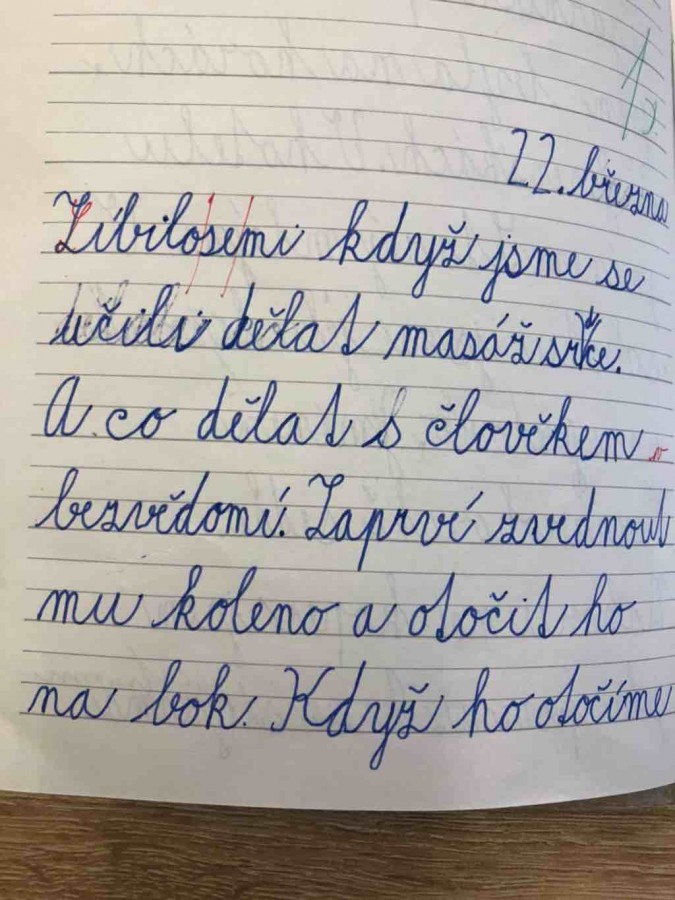 1x
22. března
Líbilosemi když jsme se
učili dělat masáž srdce.
A co dělat s člověkem v
bezvědomí. Zaprvé zvednout
mu koleno a otočit ho
na bok. Když ho otočíme